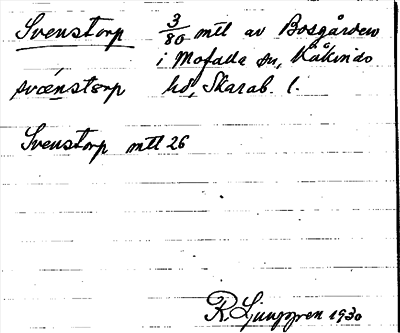 Svenstorp 3/80 mtl av Bosgården
i Mofalla sn, Kåkinds
svænstɵrp hd, Skarab. l.
Svenstorp mtl 26
R. Ljunggren 1930